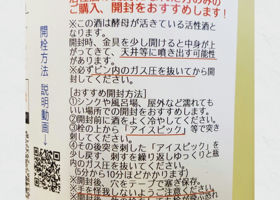 ご購入、開封をおすすめします!
※この酒は酵母が活きている活性酒と
なります。
開封時、金具を少し開けると中身が上
がってきて、天井等に噴き出す可能性
があります。
※必ずビン内のガス圧を抜いてから開
栓してください。
【おすすめ開封方法】
①シンクや風呂場、屋外など濡れても
いい場所での開封をおすすめします。
②開封前に酒をよく冷やしてください。
③栓の上から「アイスピック」等で突き
刺してください。
④その後突き刺した「アイスピック」を
少し戻す、刺すを繰り返しゆっくりと瓶
内のガス圧を抜いてください。
(5分から10分ほどかかります)
※開封後、穴をテープで塞ぎ保存。
※手を怪我しないようご注意ください。
開栓方法 説明動画→